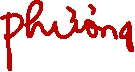 phường